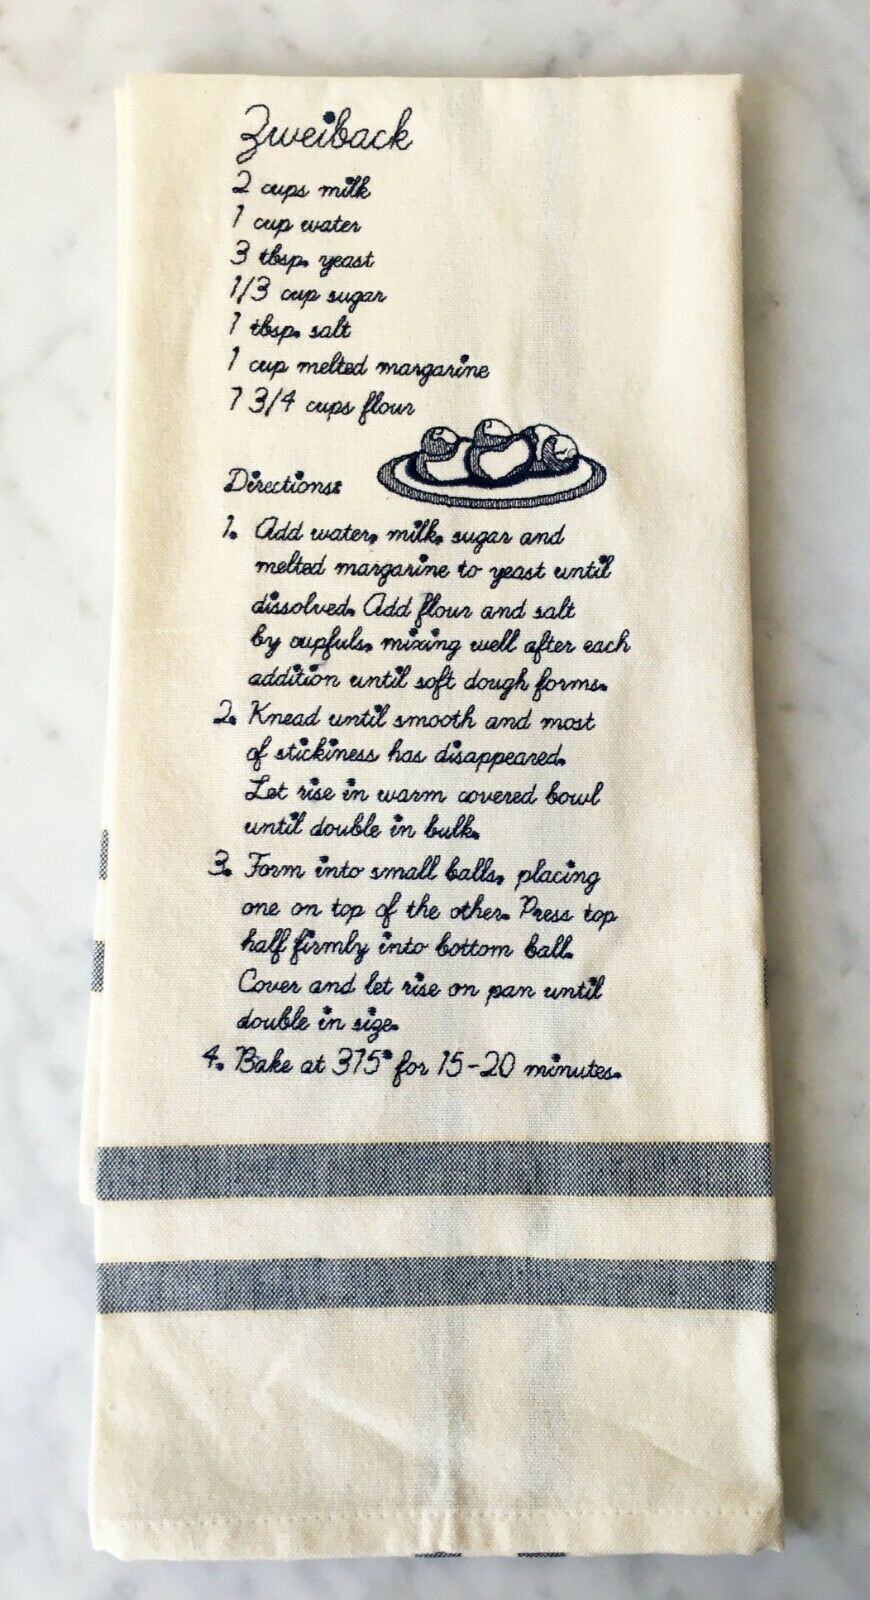 Zweiback
2 cups milk
1 cup water
3 tbsp. yeast
1/3 cup sugar
1 tbsp. salt
1 cup melted margarine
7 3/4 cups flour
Directions:
1. Add water, milk, sugar and
melted margarine to yeast until
dissolved. Add flour and salt
by cupfuls, mixing well after each
addition until soft dough forms.
2. Knead until smooth and most
of stickiness has disappeared.
Let rise in warm covered bowl
until double in bulk.
3. Form into small balls, placing
one on top of the other. Press top
half firmly into bottom ball.
Cover and let rise on pan until
double in size.
4. Bake at 375° for 15-20 minutes.